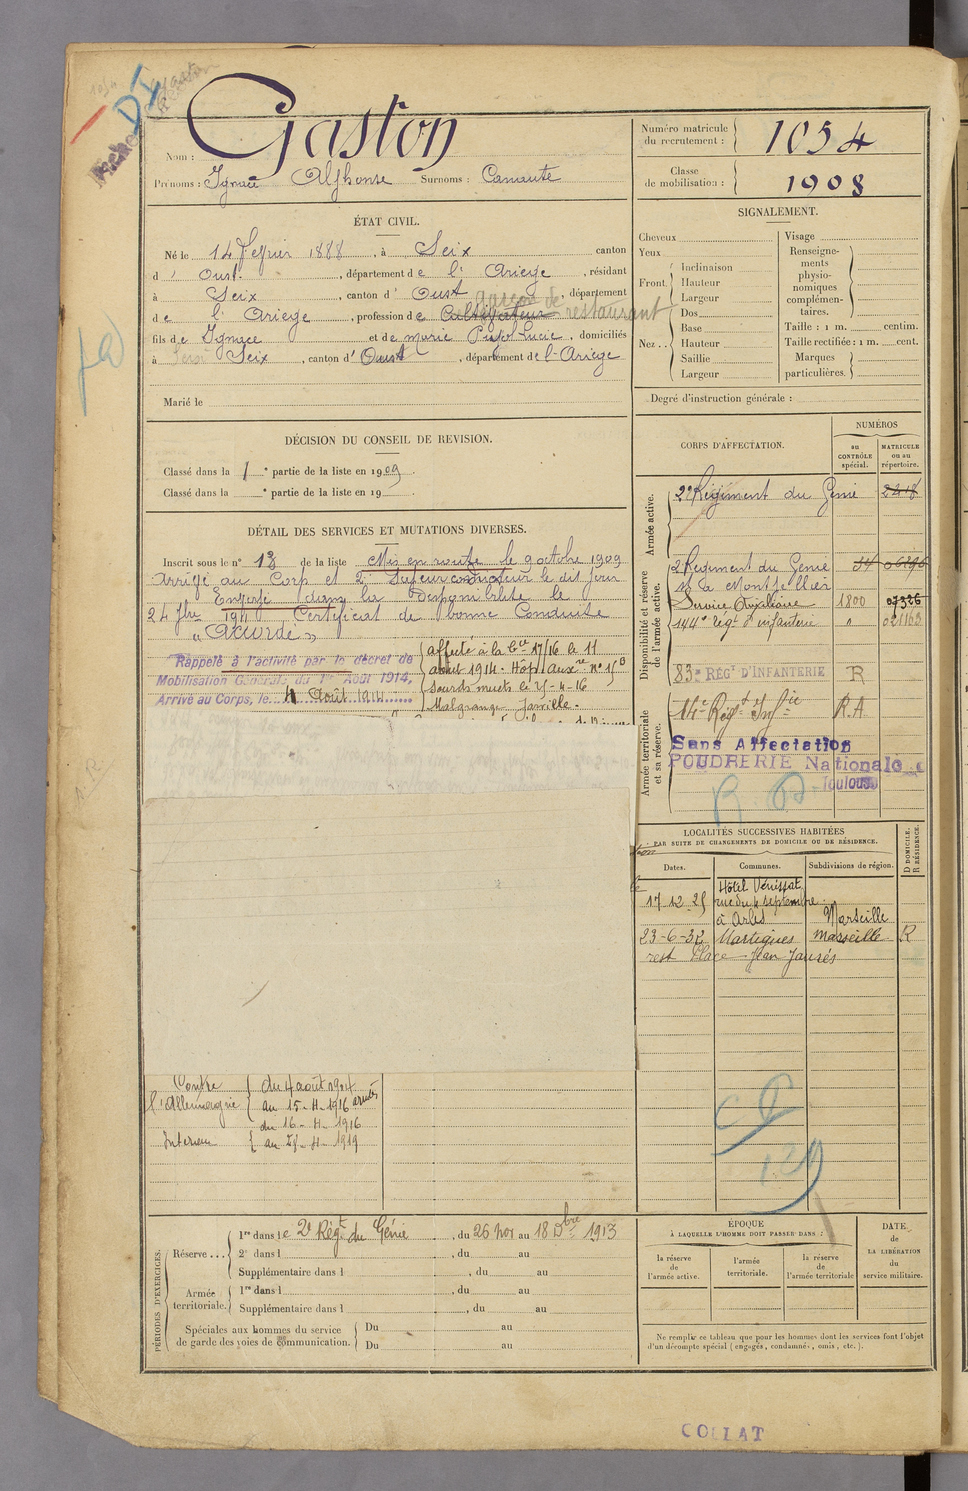 DI
Gaston
Nom :
Prénoms : Ignace Alphonse Surnoms : Camaute
Numéro matricule du recrutement : 1054
Classe de mobilisation : 1908
ÉTAT CIVIL.
Né le 14 février 1888, à Seix canton
d' Oust, département de l'Ariège, résidant
à Seix, canton d'Oust, département
garçon de
de l'Ariège, profession de Cultivateur restaurant
fils de Ignace et de marie Pujol Lucie, domiciliés
à Seix, canton d'Oust, département de l'Ariège
Marié le
SIGNALEMENT.
Cheveux
Yeux
Front. Inclinaison
Hauteur
Largeur
Nez . . Dos
Base
Hauteur
Saillie
Largeur
Visage
Renseigne-
ments
physio-
nomiques
complémen-
taires.
Taille : 1 m. centim.
Taille rectifiée : 1 m. cent.
Marques
particulières.
Degré d'instruction générale :
DÉCISION DU CONSEIL DE REVISION.
Classé dans la 1e partie de la liste en 1909.
Classé dans la e partie de la liste en 19
DÉTAIL DES SERVICES ET MUTATIONS DIVERSES.
Inscrit sous le n° 18 de la liste Mis en route le 9 octobre 1909
Arrivé au Corps et 2e Sapeur conducteur le dit jour
Envoyé dans la Disponibilité le
24 7bre 1911 Certificat de bonne Conduite
"Accordé"
Rappelé à l'activité par le décret de
Mobilisation Générale du 1er Août 1914,
Arrivé au Corps, le 4 Août 1914
affecté à la Cie 17/16 le 11
août 1914 - Hôp. Aux.re N° 15B
Sourds muets le 25-4-16
Malgrange Jarville -
CORPS D'AFFECTATION.
NUMÉROS
au CONTRÔLE spécial.
MATRICULE ou au répertoire.
Armée active.
2e Régiment du Génie 2218
Disponibilité et réserve de l'armée active.
2 Régiment du Génie
à Montpellier
Service Auxiliaire 1800 07326
144e Régt d'infanterie " 021163
83e RÉGT D'INFANTERIE R
Armée territoriale et sa réserve.
14e Régt d'Infie R.A
Sans Affectation
POUDRERIE Nationale
Toulouse
LOCALITÉS SUCCESSIVES HABITÉES
PAR SUITE DE CHANGEMENTS DE DOMICILE OU DE RÉSIDENCE.
D DOMICILE.
R RÉSIDENCE.
Dates. Communes. Subdivisions de région.
17-12-25 Hôtel Vénissat
rue du 4 septembre
à Arles Marseille
23-6-32 Martigues Marseille R
rest Place Jean Jaurés
Contre
l'Allemagne
du 4 août 1914
au 15-4-1916 armées
Intérieur
du 16-4-1916
au 25-4-1919
PÉRIODES D'EXERCICES.
Réserve . . . 1re dans le 2e Régt du Génie, du 26 nov au 18 Dbre 1913
2e dans l , du au
Supplémentaire dans l , du au
Armée territoriale. 1re dans l , du au
Supplémentaire dans l , du au
Spéciales aux hommes du service
de garde des voies de communication.
Du au
Du au
ÉPOQUE
À LAQUELLE L'HOMME DOIT PASSER DANS :
la réserve de l'armée active.
l'armée territoriale.
la réserve de l'armée territoriale
DATE DE LA LIBÉRATION du service militaire.
Ne remplir ce tableau que pour les hommes dont les services font l'objet
d'un décompte spécial (engagés, condamnés, omis, etc.).
COLLAT